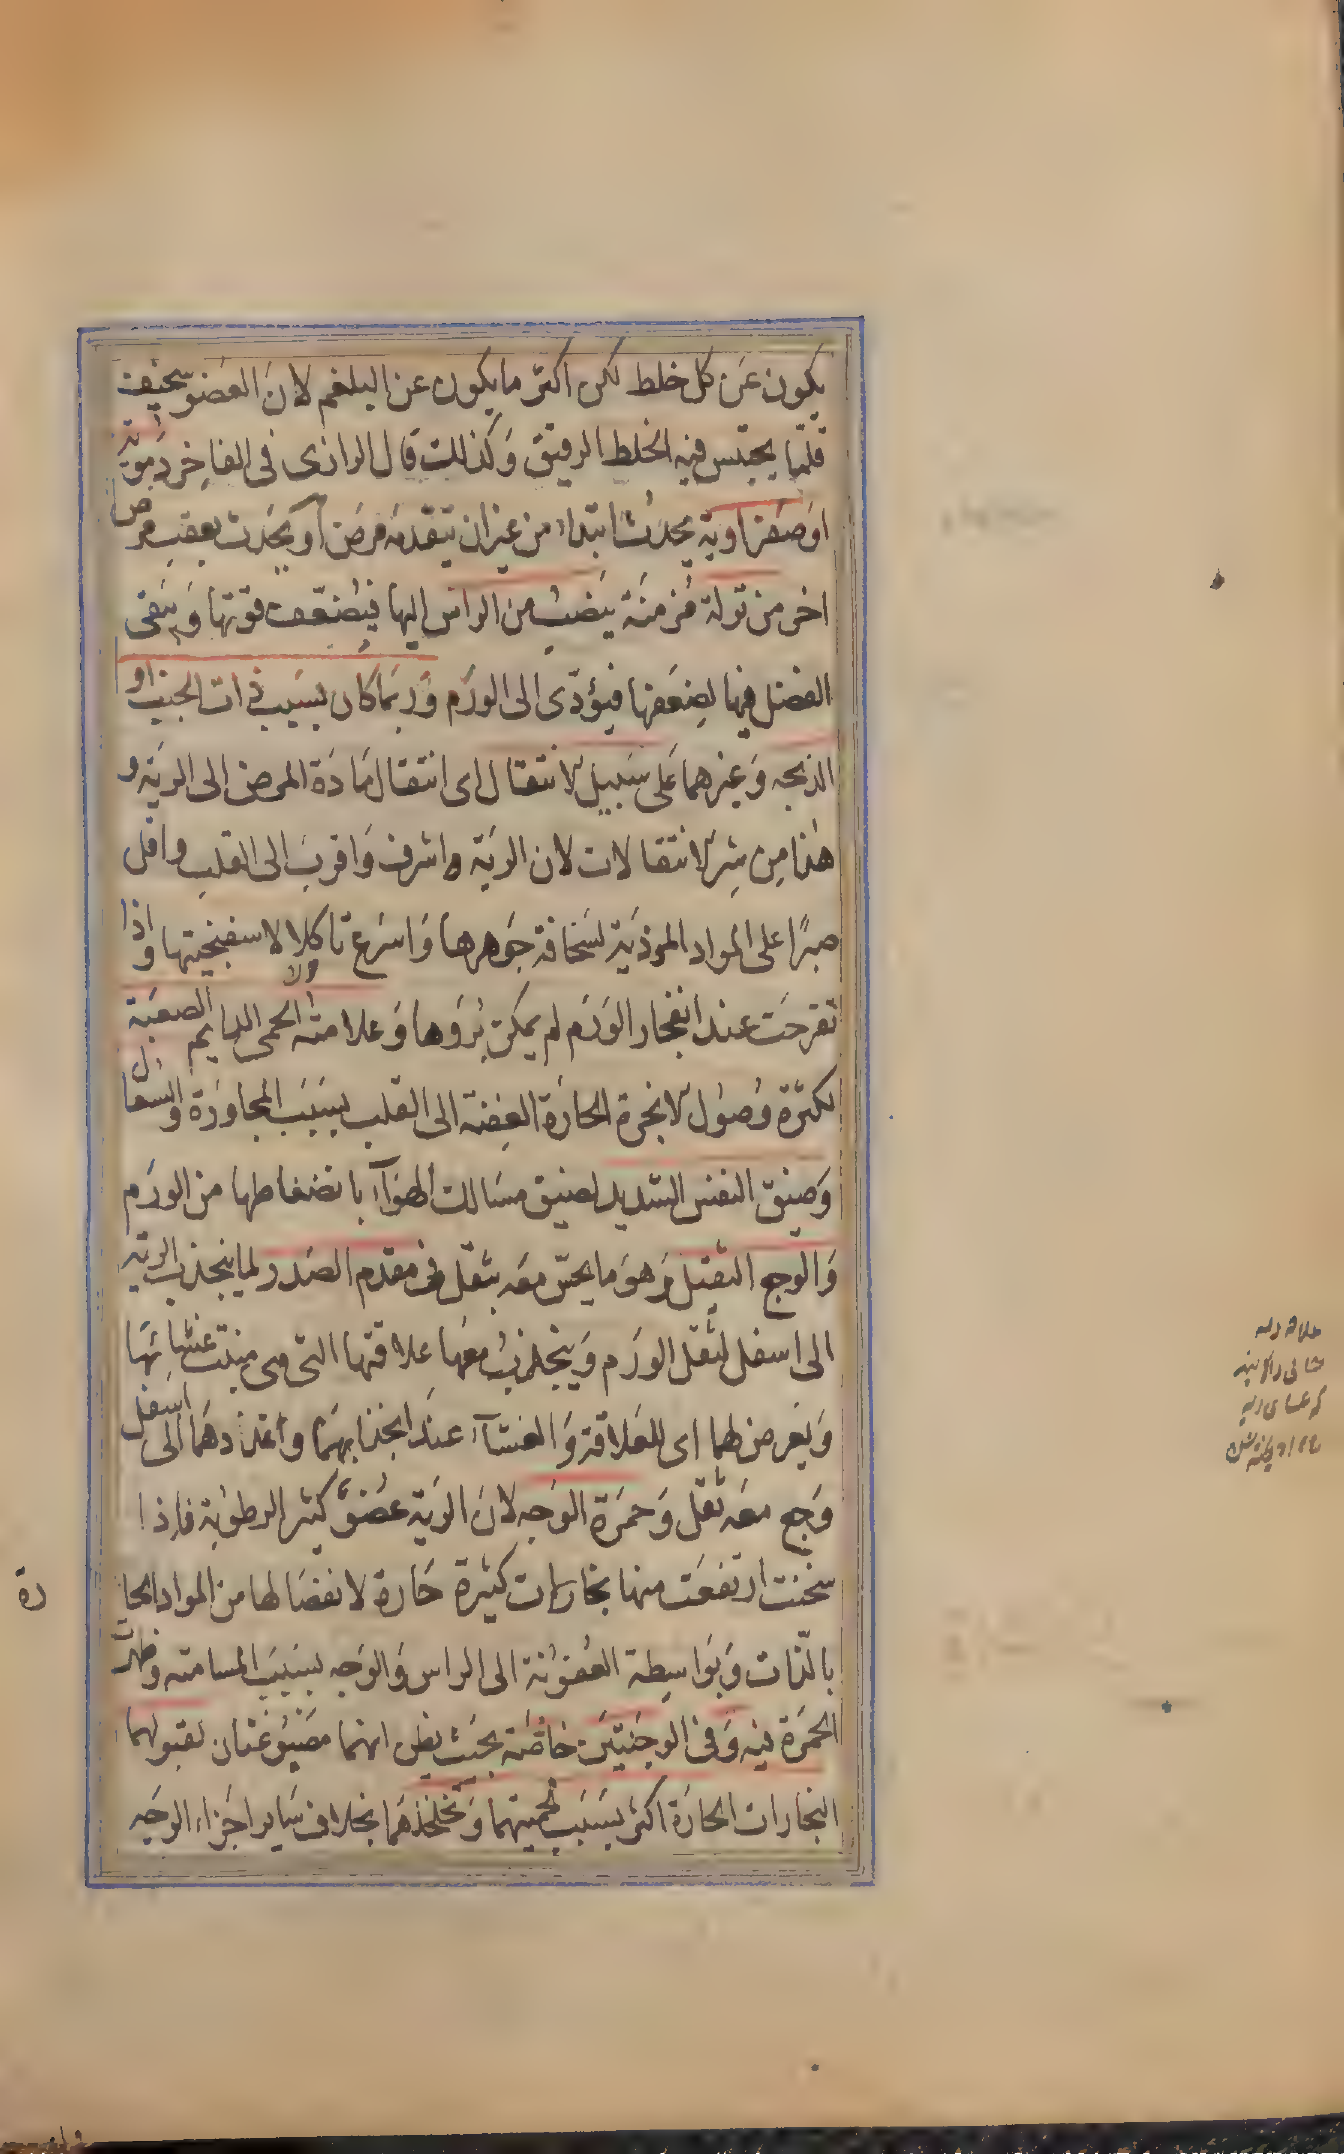 يكون عن كل خلط لكن اكثر ما يكون عن البلغم لان العضو سخيف
قلما يحتبس فيه الخلط الرقيق وكذلك قال الرازى فى الفاخر دموية
او صفراوية يحدث ابتداء من غير ان يتقدمه مرض او يحدث بعقب مرض
اخر من نزلة مزمنة ينصب من الراس اليها فيضعف قوتها و يبقى
الفضل فيها لضعفها فيؤدى الى الورم وربما كان بسبب ذات الجنب او
الذبحه وغيرهما على سبيل الانتقال اى انتقال مادة المرض الى الرية و
هذا من شر الانتقالات لان الرية اشرف واقرب الى القلب واقل
صبرًا على المواد الموذية لسخافة جوهرها واسرع تاكلا لاسفنجيتها واذا
تقرحت عند انفجار الورم لم يمكن بروها وعلامته الحمى الدايم الصعبة
لكثرة وصول الابخرة الحارة العفنة الى القلب بسبب المجاورة والسعال
وضيق النفس الشديد لضيق مسالك الهواء بانضغاطها من الورم
والوجع الثقيل وهو ما يحس معه بثقل فى مقدم الصدر لما ينجذب الرية
الى اسفل لثقل الورم وينجذب معها علاقتها التى هى منبت غشائها
ويعرض لهما اى للعلاقة والغشاء عند انجذابهما وامتدادهما الى اسفل
وجع معه ثقل وحمرة الوجه لان الرية عضو كثير الرطوبة فاذا
سخنت ارتفعت منها بخارات كثيرة حارة لانفصالها من المواد الحا
رة
بالذات وبواسطة العفونة الى الراس والوجه بسبب المسامته وظهرت
الحمرة فيه وفى الوجنتين خاصة بحيث يظن انهما مصبوغتان لقبولهما
البخارات الحارة اكثر بسبب لحميتهما وتخلخلهما بخلاف ساير اجزاء الوجه